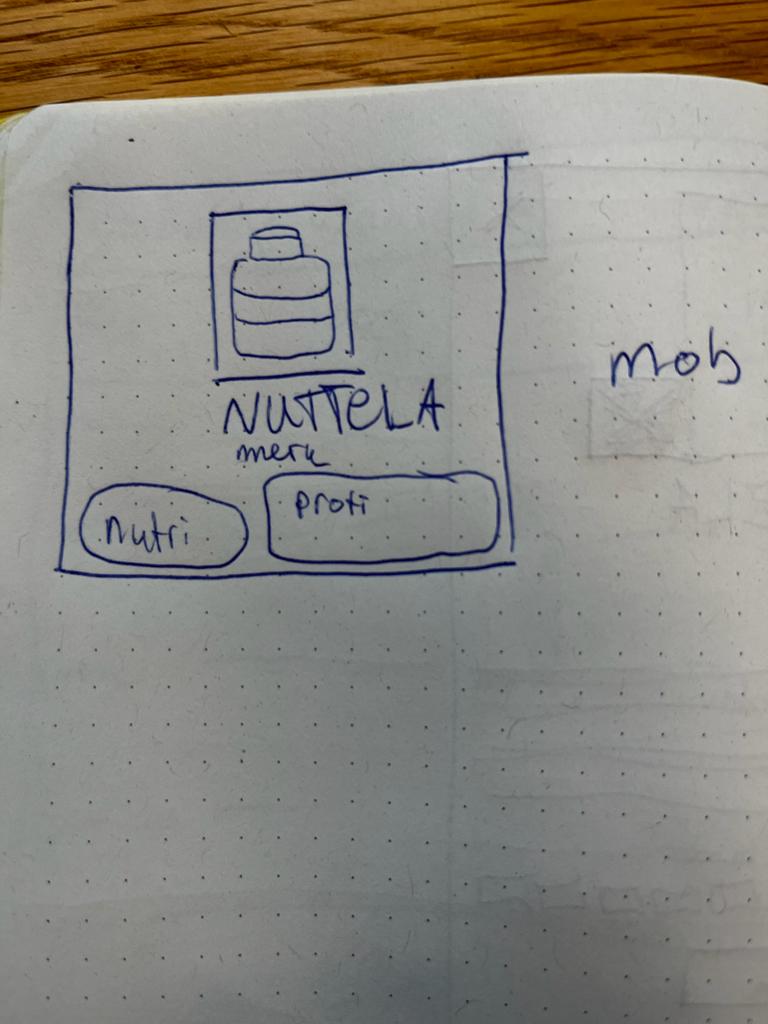 NUTTELA
merk
nutri
proti
mob